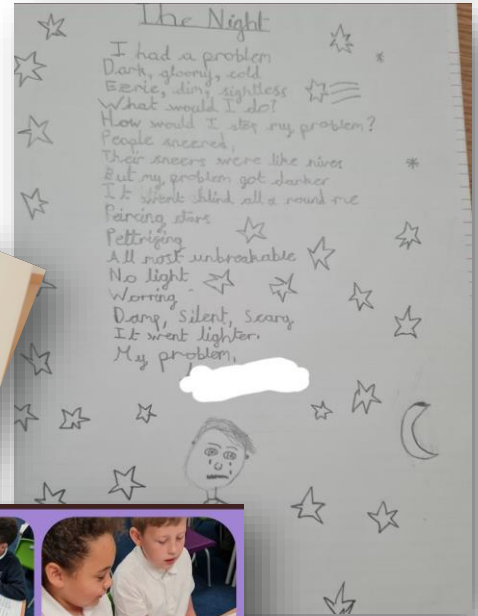 The Night
I had a problem
Dark, gloomy, cold
Eerie, dim, sightless
What would I do?
How would I stop my problem?
People sneered,
Their sneers were like nives
But my problem got darker
It went blind all a round me
Peircing stars
Pettrifing
All most unbreakable
No light
Worring
Damp, Silent, Scary
It went lighter.
My problem,